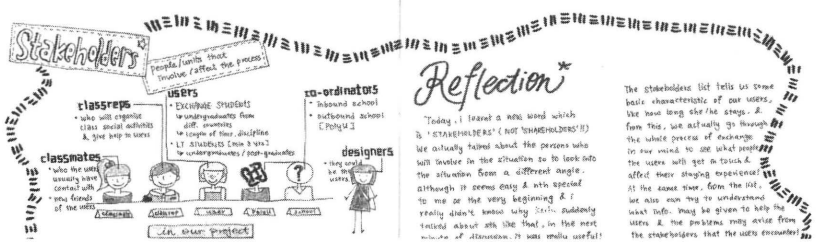 Stakeholders*
People/units that
involve/affect the process
classreps
• who will organise
class social activities
& give help to users
users
• EXCHANGE STUDENTS
↳ undergraduates from
diff. countries
↳ length of time, discipline
• LT STUDENTS [min 3 yrs]
↳ undergraduates/post-graduates
co-ordinators
• inbound school
• outbound school
[PolyU]
classmates
• who the users
usually have
contact with
• new friends
of the users
designers
• they could
be the
users
classrep
user
PolyU
school
in our project
Reflection*
Today, i learnt a new word which
is 'STAKEHOLDERS' (NOT 'SHAREHOLDERS'!!)
We actually talked about the persons who
will involve in the situation so to look into
the situation from a different angle.
although it seems easy & nth special
to me at the very beginning & i
really didn't know why suddenly
talked about sth like that, in the next
minute of discussion, it was really useful!
The stakeholders list tells us some
basic characteristic of our users,
like how long she/he stays, &
from this, we actually go through
the whole process of exchange
in our mind to see what people
the users will get in touch &
affect their staying experience!
At the same time, from the list,
we also can try to understand
what info. may be given to help the
users & the problems may arise from
the stakeholders that the users encounter!